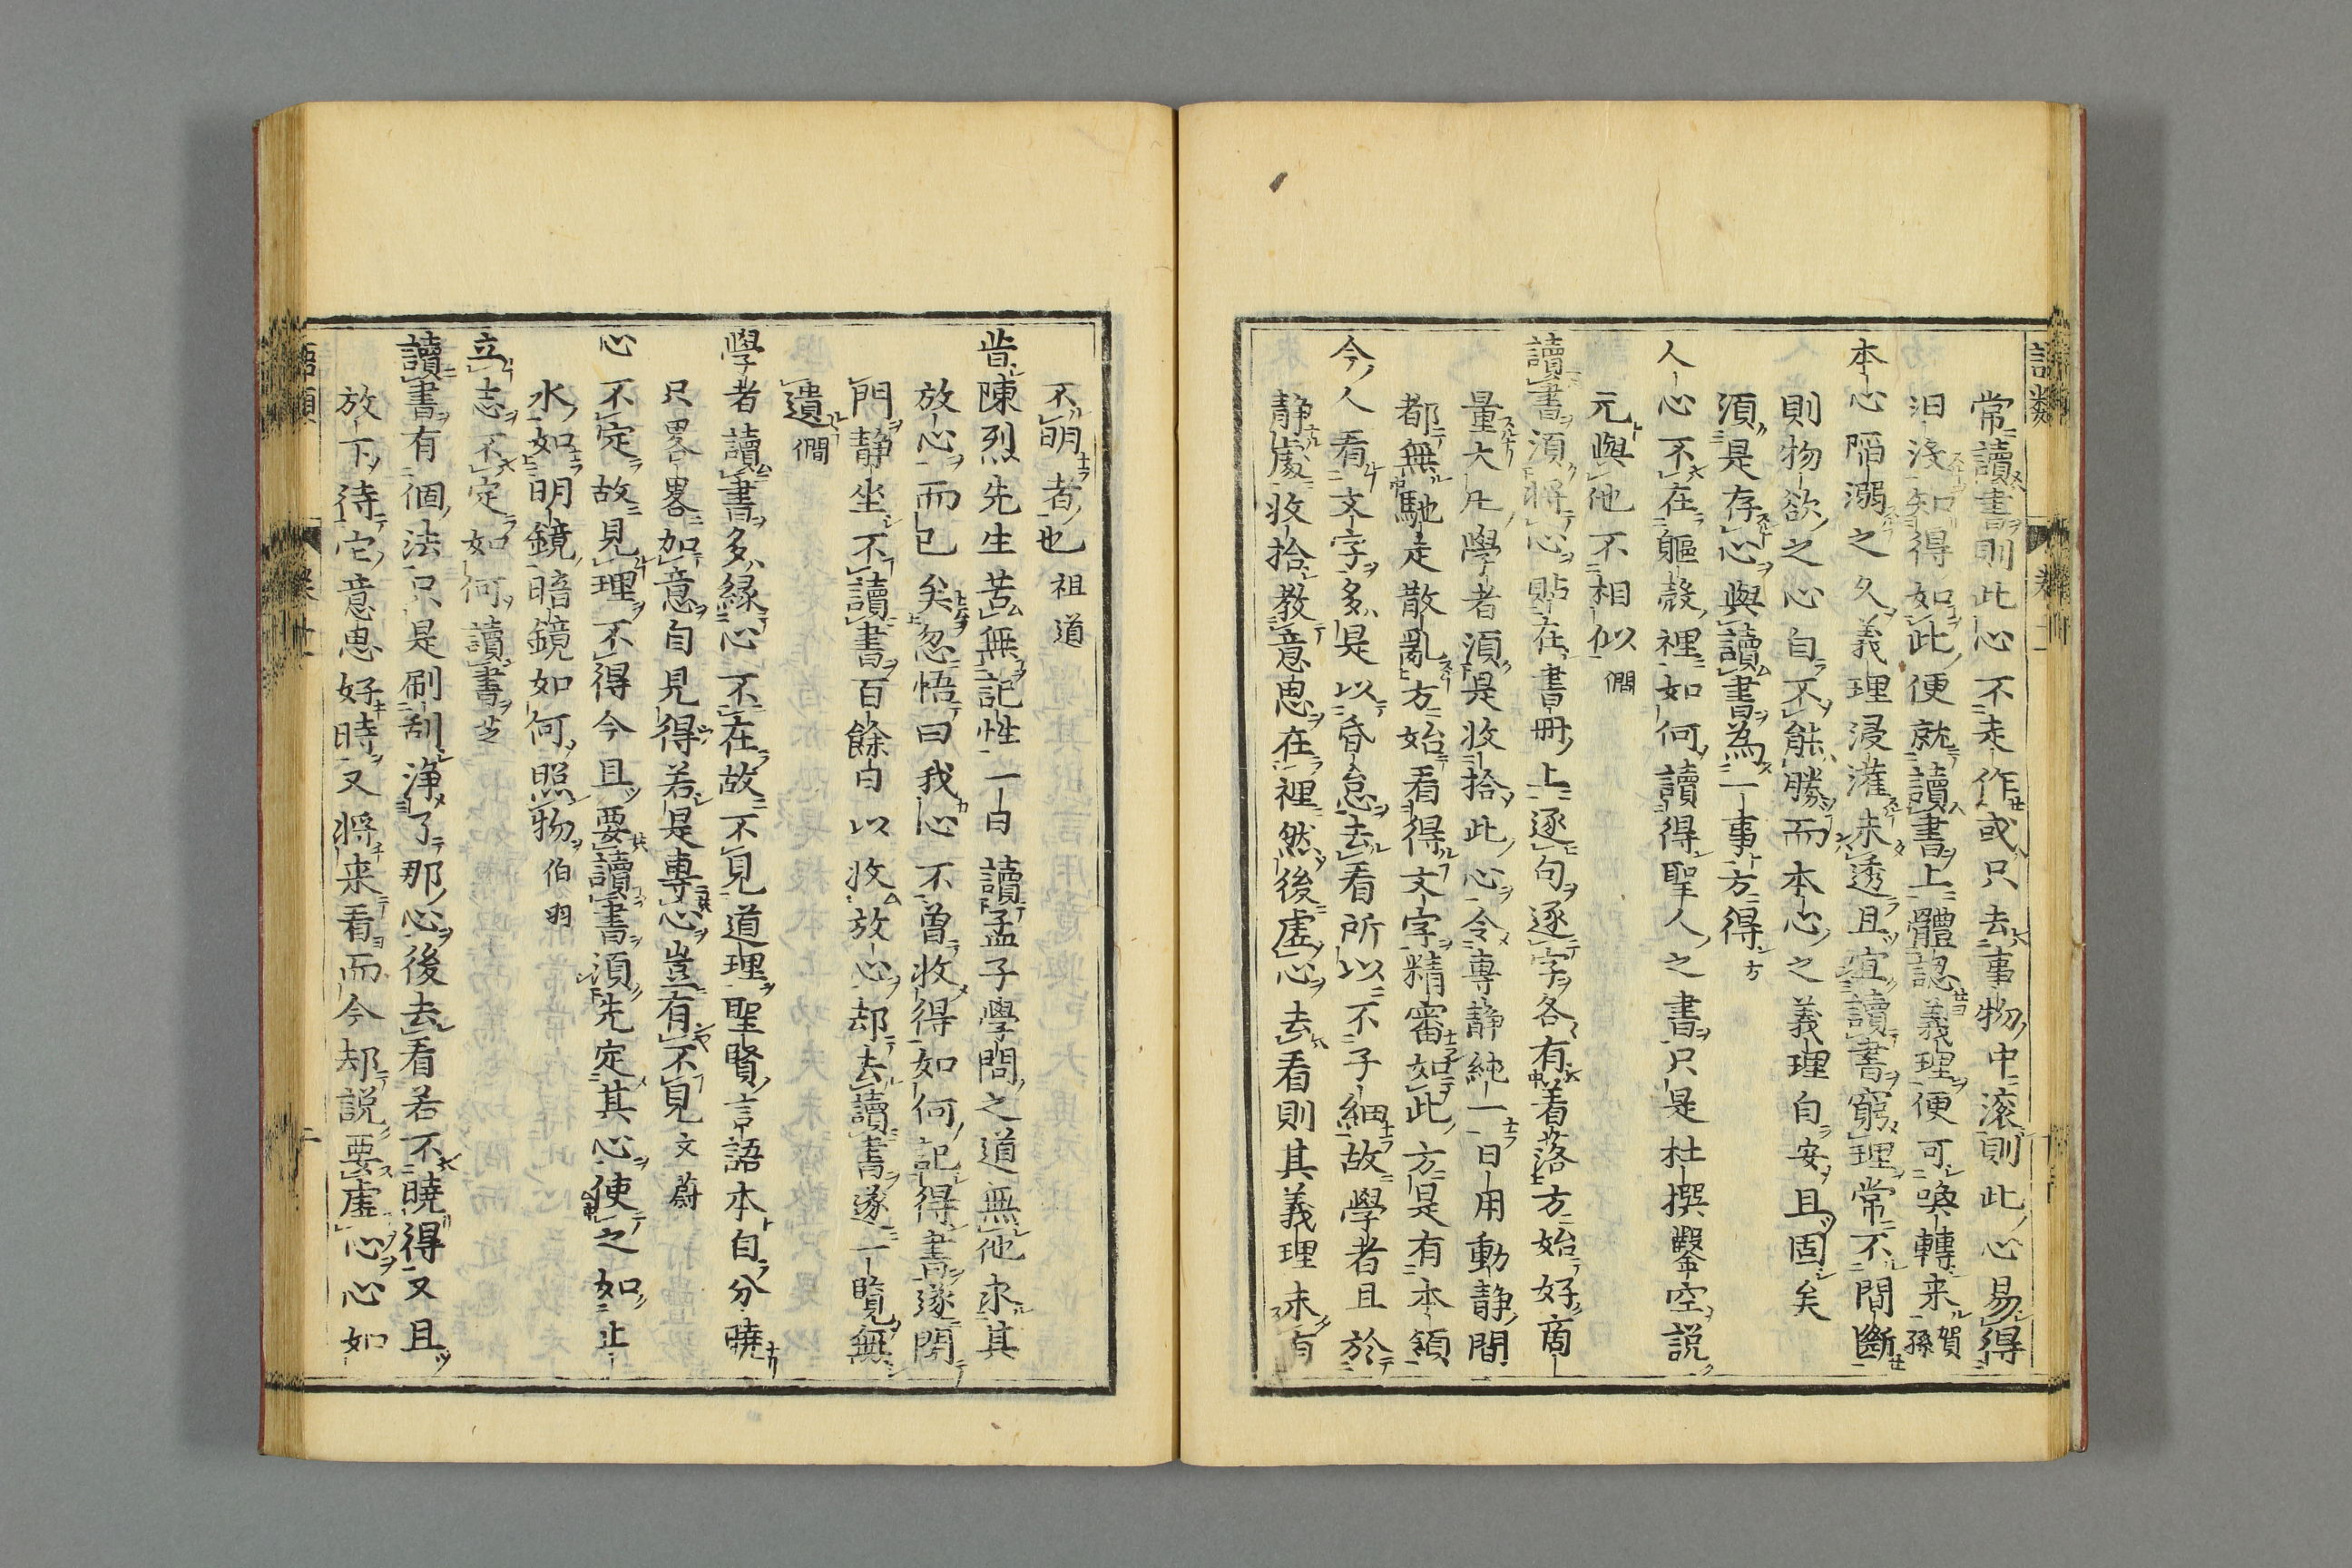 常讀書則此心不走作或只去事物中滚則此心易得
汩没知得如此便就讀書上體認義理便可喚轉来賀孫
本心陷溺之久義理浸灌未透且宜讀書窮理常不間斷
則物欲之心自不能勝而本心之義理自安且固矣
須是存心與讀書為一事方得方
人心不在軀殻裡如何讀得聖人之書只是杜撰鑿空説
元與他不相似僩
讀書須將心貼在書冊上逐句逐字各有着落方始好商
量大凡學者須是收拾此心令專静純一日用動静間
都無馳走散亂方始看得文字精審如此方是有本領
今人看文字多是以昏怠去看所以不子細故學者且於
静處收拾教意思在裡然後虚心去看則其義理未有
不明者也祖道
昔陳烈先生苦無記性一日讀孟子學問之道無他求其
放心而已矣忽悟曰我心不曾收得如何記得書遂閉
門静坐不讀書百餘日以收放心却去讀書遂一覧無
遺僩
學者讀書多縁心不在故不見道理聖賢言語本自分暁
只畧畧加意自見得若是專心豈有不見文蔚
心不定故見理不得今且要讀書須先定其心使之如止
水如明鏡暗鏡如何照物伯羽
立志不定如何讀書芝
讀書有個法只是刷刮浄了那心後去看若不暁得又且
放下待它意思好時又將来看而今却説要虚心心如